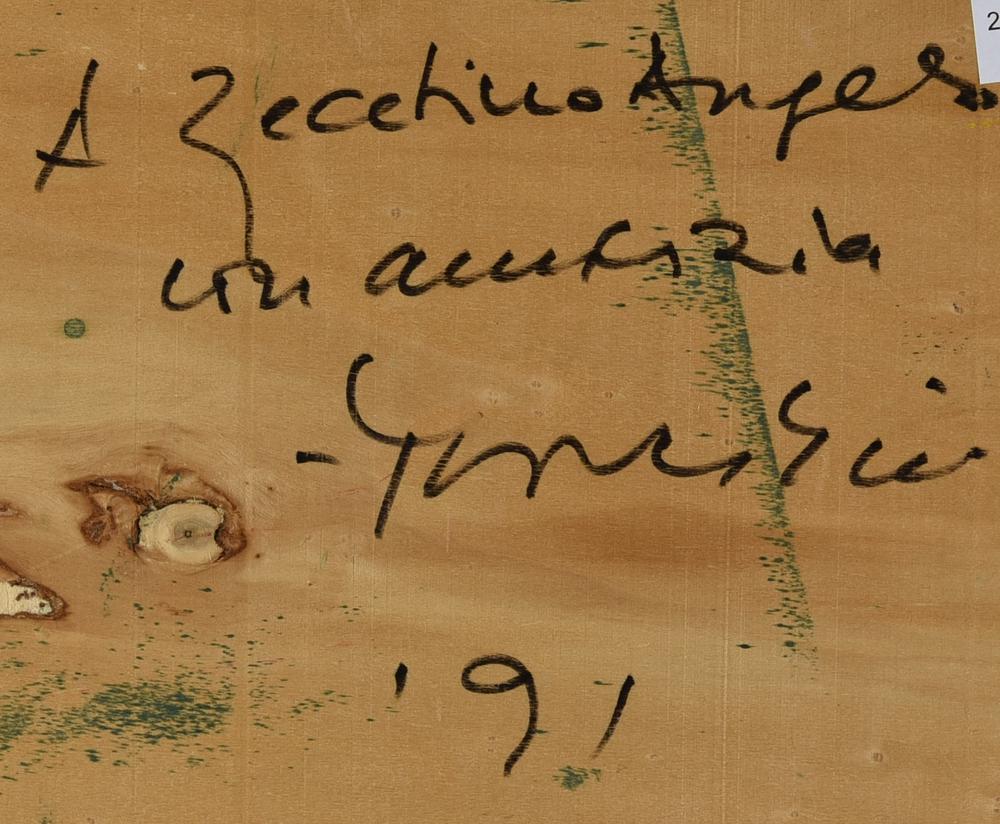 A Zecchino Angelo
con amicizia
'91
2